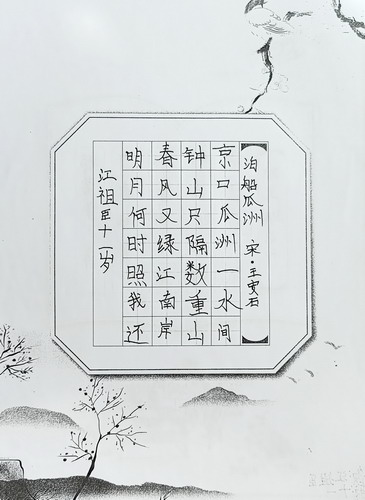 泊船瓜洲 宋·王安石
京口瓜洲一水间
钟山只隔数重山
春风又绿江南岸
明月何时照我还
江祖臣十一岁